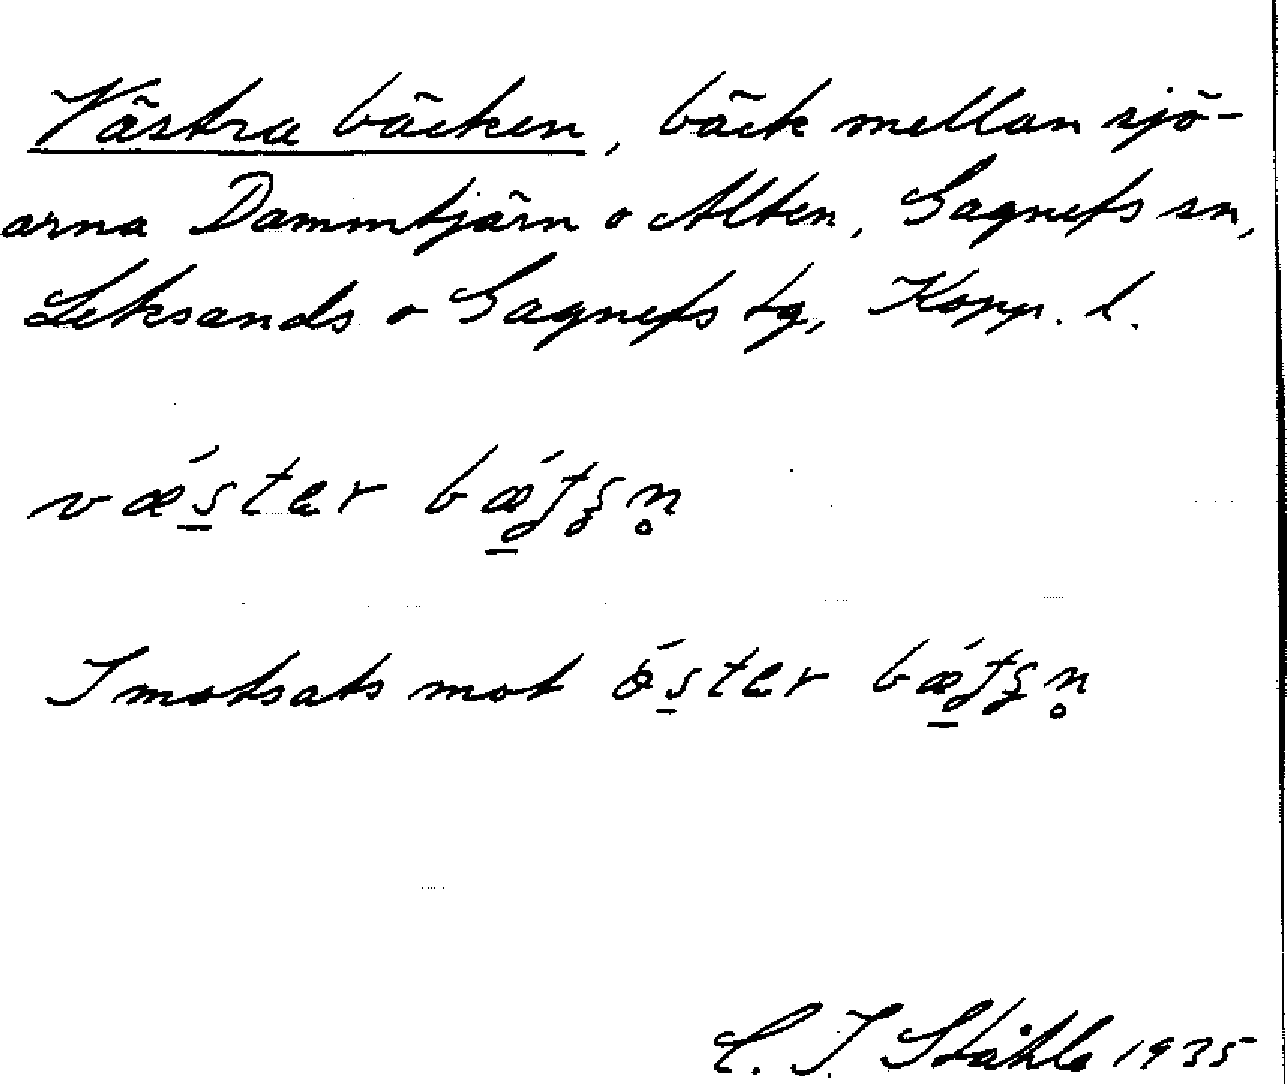 Västra bäcken, bäck mellan sjö-
arna Dammtjärn o Alten, Gagnefs sn,
Leksands o Gagnefs tg, Kopp. l.
vǽster
I motsats mot
C. I. Ståhle 1935